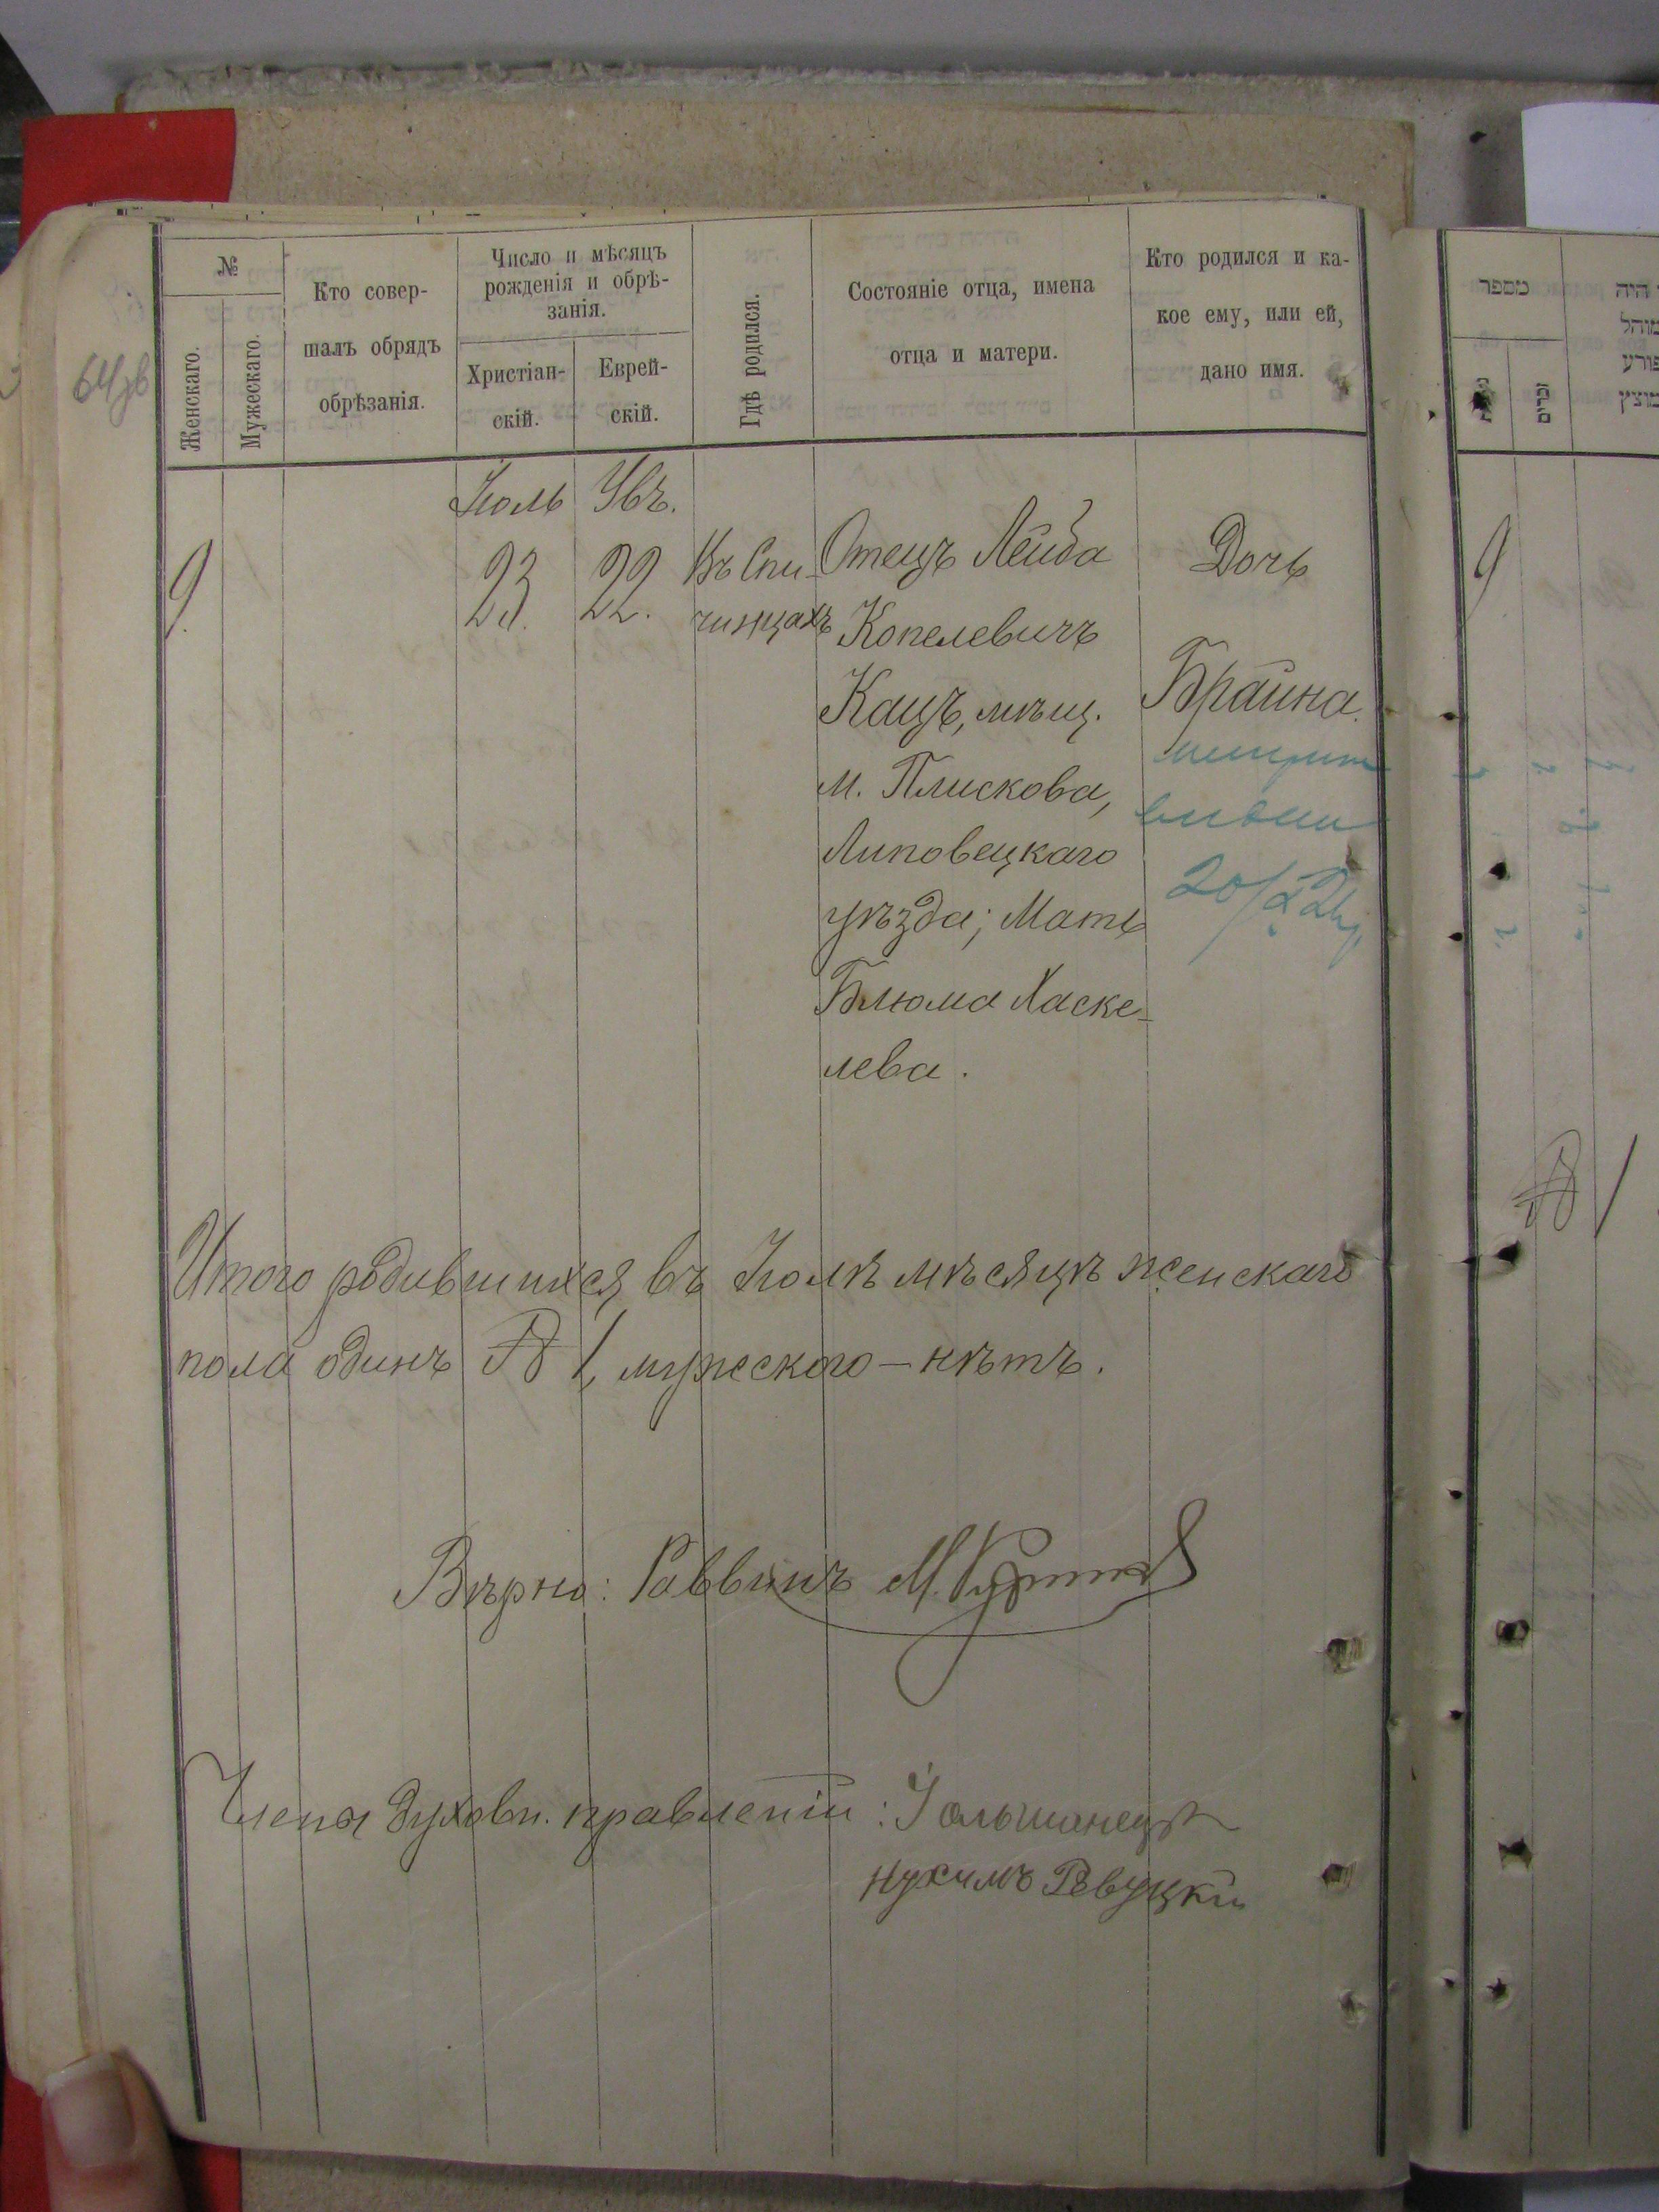 64зв
№
Женскаго.
Мужескаго.
Кто совер-
шалъ обрядъ
обрѣзанія.
Число и мѣсяцъ
рожденія и обрѣ-
занія.
Христіан-
скій.
Еврей-
скій.
Гдѣ родился.
Состояніе отца, имена
отца и матери.
Кто родился и ка-
кое ему, или ей,
дано имя.
Іюль
9.
23.
22.
Въ Спи-
чинцахъ
Отецъ Лейба
Копелевичъ
Кацъ, мѣщ.
м. Плискова,
Липовецкаго
уѣзда; Мать
Блюма Хаске-
лева.
Дочь
Брайна.
Итого родившихся въ Іюлѣ мѣсяцѣ женскаго
пола одинъ № 1, мужеского – нѣтъ.
Вѣрно: Раввинъ М.
Члены духовн. правленія: І Ольшанецъ
Нухимъ Ревуцкій
מספר
זכרים
היה
מוהל
פורע
מוצץ
9
№ 1